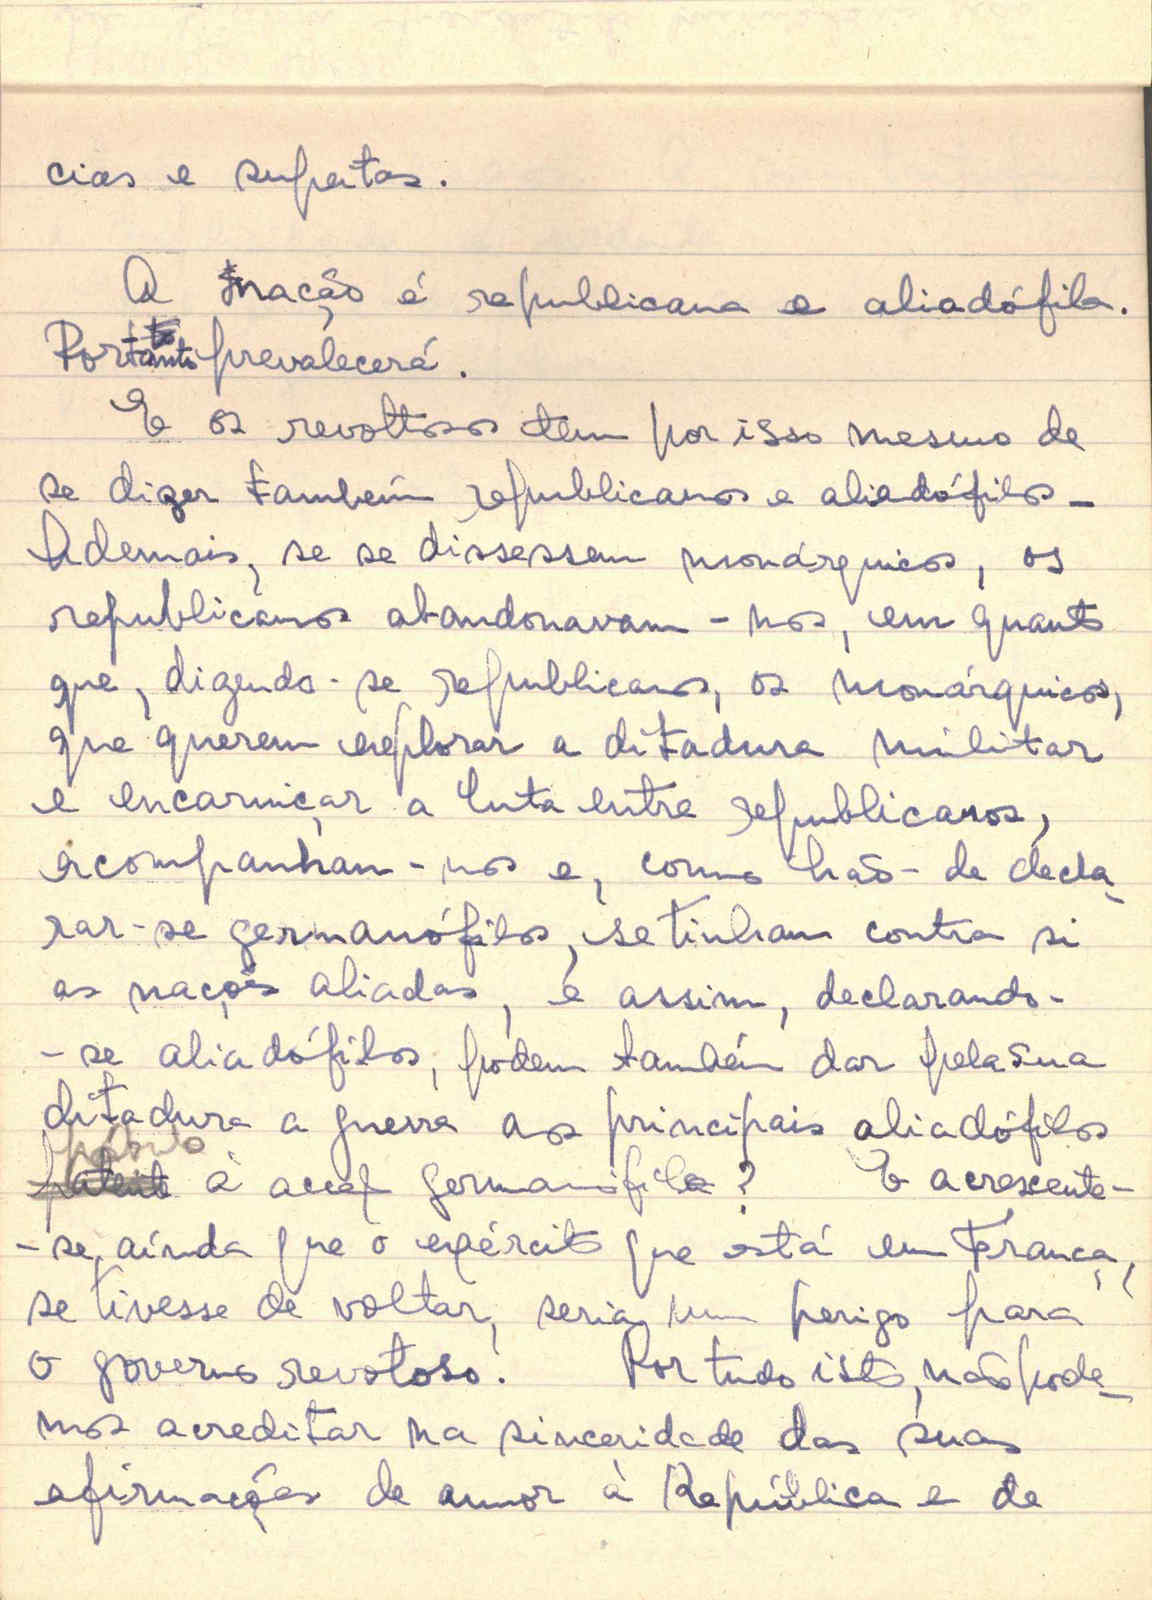 cias e sujeitas.
A nação é republicana e aliadófila.
Portanto prevalecerá.
E os revoltosos tem por isso mesmo de
se dizer também republicanos e aliadófilos -
Ademais, se se dissessem monárquicos, os
republicanos abandonavam-nos, em quanto
que, dizendo-se republicanos, os monárquicos,
que querem explorar a ditadura militar
e encarniçar a luta entre republicanos,
acompanham-nos e, como hão-de decla-
rar-se germanófilos, se tinham contra si
as nações aliadas, e assim, declarando-
-se aliadófilos, podem também dar pela sua
ditadura a guerra aos principais aliadófilos
à germanófila? E acrescente-
-se, ainda que o exército que está em França,
se tivesse de voltar, seria um perigo para
o governo revoltoso. Por tudo isto, não pode-
mos acreditar na sinceridade das suas
afirmações de amor à República e de